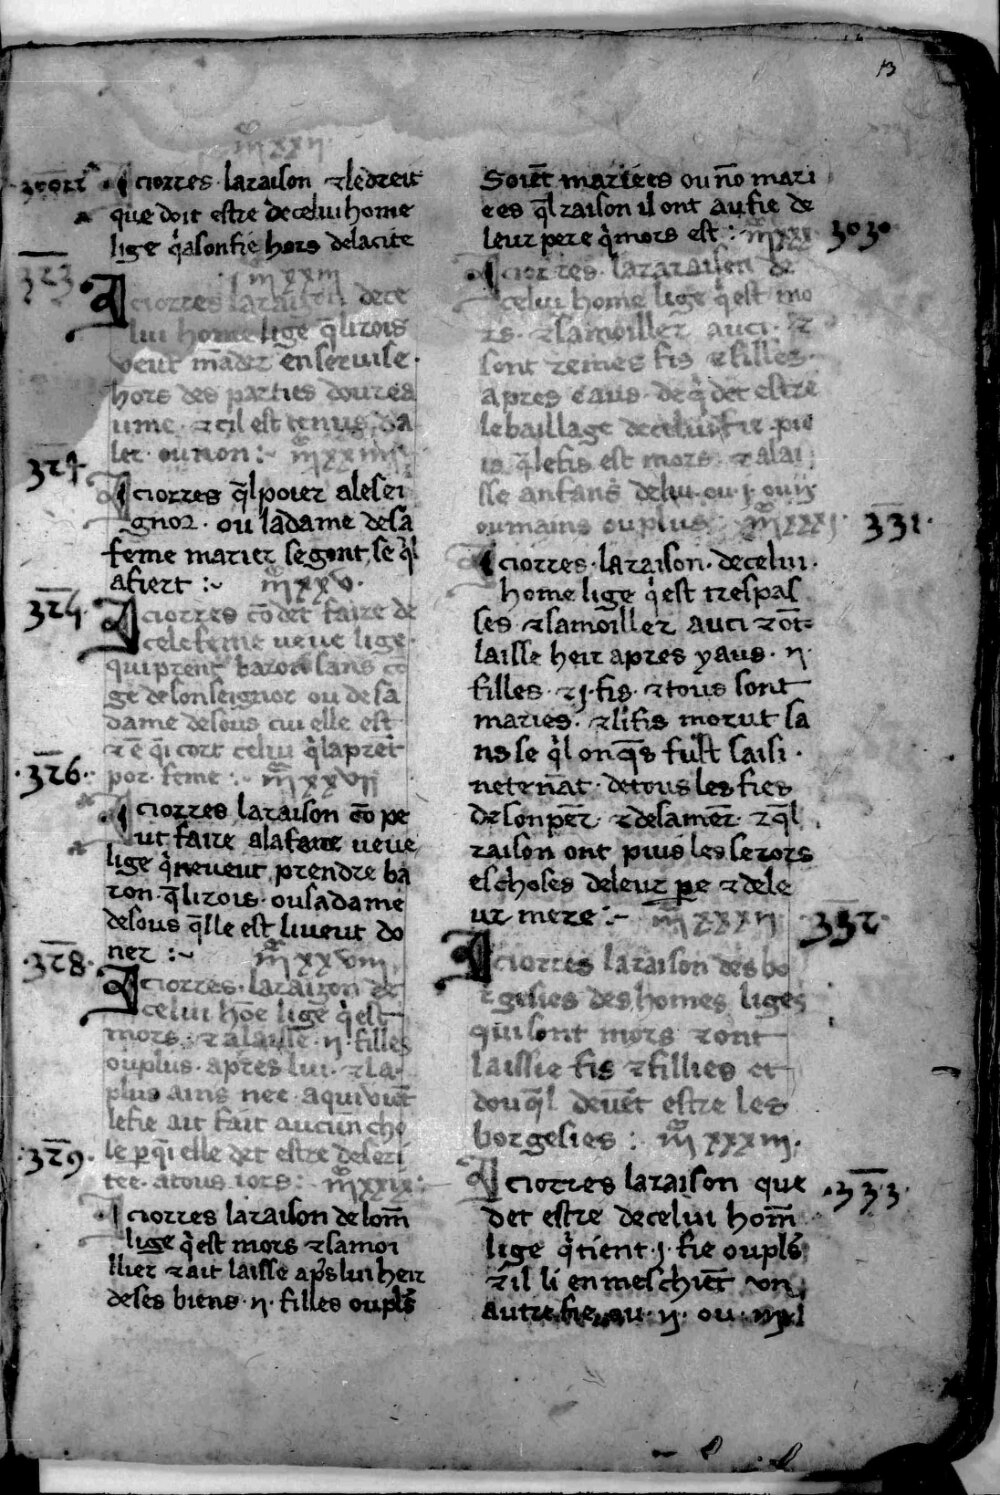 13
m̄ xxıı
A ciorres · laraison ⁊ledreit
que doit estre decelui home
lige q̓asonfie hors delacite
323
m̄ xxııı
A ciorres laraison dece
lui home lige q̄lirois
veut mādr̄ enservise ·
hors des parties doutrea
ume · ⁊cil est tenus da
ler · ou non :~ m̄ xxıııı
324
A ciorres q̄l poier aleseı
gnor · ou ladame desa
feme marier se gont, se q̓l
afiert :~ m̄ xxv ·
325
A ciorres cō det faire de
cele feme veve lige ·
qui prent baron sans cō
ge de son seignor ou de sa
dame desous cui elle est
⁊ē q̓i cort celui q̓laprēt
por feme : m̄ xxvıı
· 326 ·
A ciorres laraison cō pe
ut faire alafame veve
lige q̓neveut prendre ba
ron · q̄lirois · ousadame
desous q̄lle est liveut do
ner :~ m̄ xxvııı
· 328 ·
A ciorres · laraizon de
celui hōe lige q̓est
mors · ⁊alaisse · ıı · filles
ouplus · apres lui · ⁊la ·
plus ains nee · aquivıēt
lefie ait fait aucun cho
le ꝑq̓i elle det estre deseri
tee · atous iors : m̄ xxıx :
· 329 ·
A ciorres laraison delom̄
lige q̓est mors ⁊samoi
llier ⁊ait laisse ap̓s lui heir
deses biens · ıı · filles oupl̓s
Soiēt mariees ou nō mari
ees q̄l raison il ont au fie de
leur pere q̓mors est : m̄ xxx 3030
A ciorres · lararaisen de
celui home lige q̓est mo
rs · ⁊samoiller auci · ⁊
sont remes fis ⁊filles ·
apres eaus · de q̓ det estre
lebaillage decelui fie · pre
q̄lefis est mors · ⁊alai
sse anfans de lui · ou · ȷ · ou ıȷ ·
oumains ouplus m̄ xxxı 331 ·
A ciorres · laraison · decelui ·
home lige q̓est trespas
ses ⁊samōiller auci ⁊ōt
laisse heir apres yaus · ıı ·
filles · ⁊ȷ · fis · ⁊tous sont
maries · ⁊lifis morut sa
ns se q̓l onq̄s fust saisi ·
netenāt · detous les fies
deson pēr · ⁊desamēr · ⁊q̄l
raison ont puis les serors
eschoses deleur ꝑe ⁊dele
ur mere :~ m̄ xxxıı 332 ·
A ciorres laraison des bo
rgesies des homes liges
qui sont mors ⁊ont
laissie fis ⁊fillies et
dou q̄l devēt estre les
borgesies : m̄ xxxııı ·
A ciorres laraison que · 333 ·
det estre decelui hom̄
lige q̓tient · ȷ · fie oupl̓s
⁊il li en meschiet un
autre fie, ou · ıı · ou ·